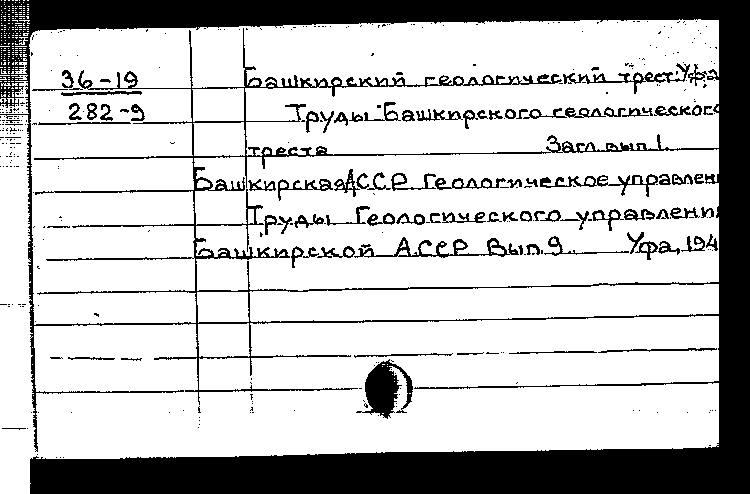 36-19
282-9
Башкирский геологический трест. Уфа
Труды Башкирского геологического
треста Загл. вып. 1.
Башкирская АССР. Геологическое управлени
Труды Геологического управлени
Башкирской АССР Вып. 9. Уфа, 194